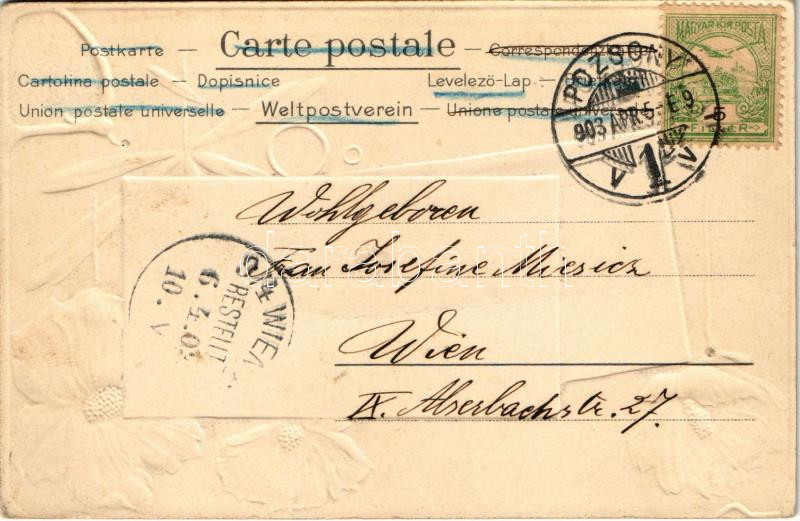 Postkarte — Carte postale — Correspondenzkarte
Cartolina postale — Dopisnice Levelezö-Lap. —
Union postale universelle — Weltpostverein — Unione postale universale
MAGYAR KIR. POSTA
5
FILLER
POZSONY
903 APR. 5
1
Wohlgeboren
Frau Josefine Miesicz
Wien
IX. Alserbachstr. 27.
9/4 WIEN
BESTELLT
6. 4. 03
10. V
darabanth